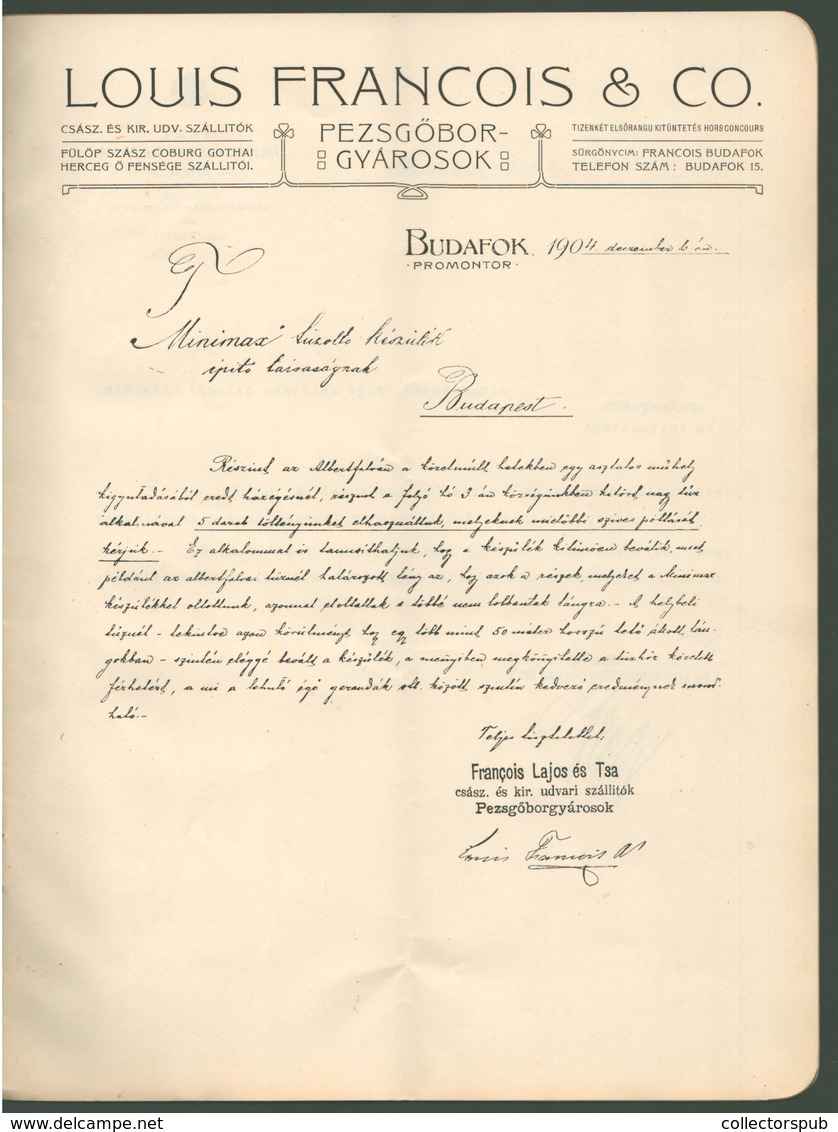 LOUIS FRANCOIS & CO.
CSÁSZ. ÉS KIR. UDV. SZÁLLITÓK
FÜLÖP SZÁSZ COBURG GOTHAI
HERCEG Ő FENSÉGE SZÁLLITÓI.
PEZSGŐBOR-
GYÁROSOK
TIZENKÉT ELSŐRANGU KITÜNTETÉS HORS CONCOURS
SÜRGÖNYCIM: FRANCOIS BUDAFOK
TELEFON SZÁM: BUDAFOK 15.
BUDAFOK, 1904 december 6 án.
·PROMONTOR·
„Minimax" tűzoltó készülék
épitő társaságnak
Budapest.
Részint az Albertfalván a közelmúlt hetekben egy asztalos műhely
kigyuladásából eredt házégésnél, résznt a folyó hó 3 án községünkben kitört nagy tűz
alkalmával 5 darab töltényünket elhasználtuk, melyeknek mielőbbi szives pótlását
kérjük.- Ez alkalommal is tanusithatjuk, hogy a készülék kitünően beválik, mert
például az albertfalvai tűznél határozott tény az, hogy azok a részek, melyeket a Minimax
készülékkel oltottunk, azonnal eloltattak s többé nem lobbantak lángra.- A helybeli
tűznél - tekintve azon körülményt hogy egy több mint 50 méter hosszú tető állott lán-
gokban - szintén eléggé bevált a készülék, a menyiben megkönyitette a tűzhöz közelebb
férhetést, a mi a lehulló égő gerendák stb. között szintén kedvező eredménynek mond-
ható.-
Teljes tisztelettel:
François Lajos és Tsa
csász. és kir. udvari szállitók
Pezsgőborgyárosok
Louis Francois
collectorspub